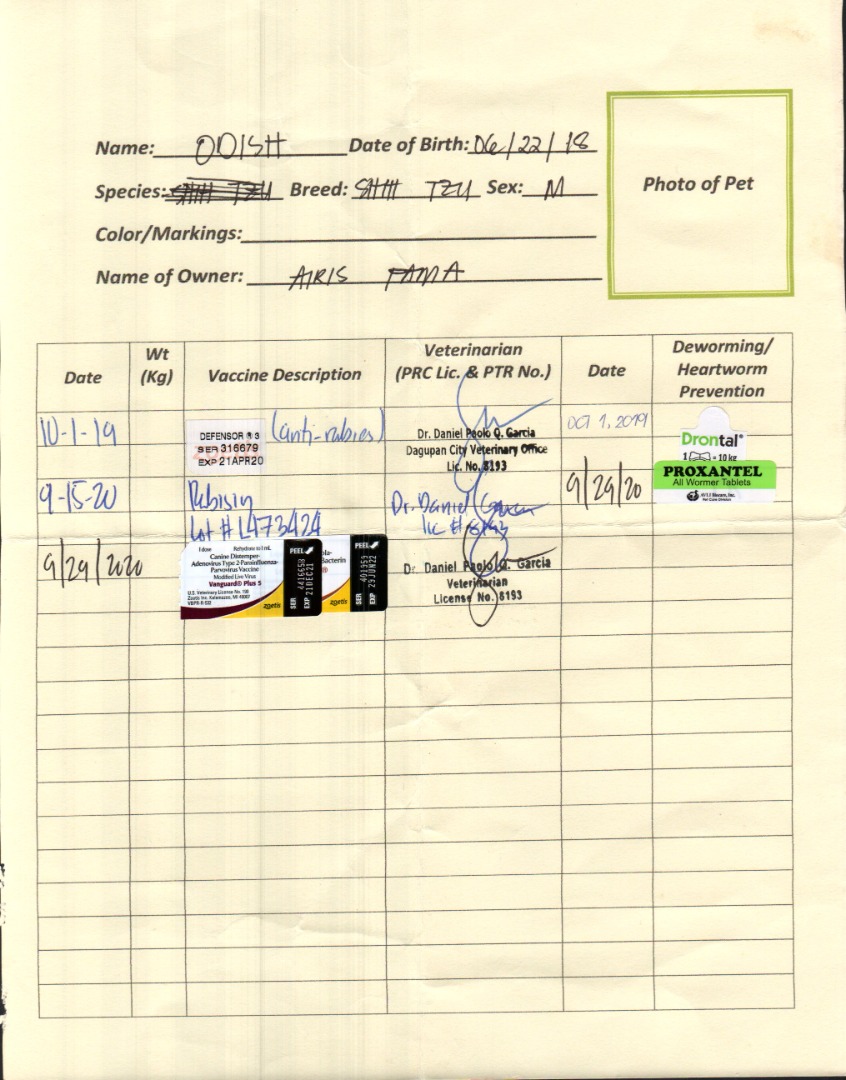 Name: ODISH Date of Birth: 06/22/18
Species: SHIH TZU Breed: SHIH TZU Sex: M
Photo of Pet
Color/Markings:
Name of Owner: AIRIS FAMA
Date
Wt
(Kg)
Vaccine Description
Veterinarian
(PRC Lic. & PTR No.)
Date
Deworming/
Heartworm
Prevention
10-1-19
DEFENSOR ® 3
SER 316679
EXP 21APR20
(anti-rabies)
Dr. Daniel Paolo Q. Garcia
Dagupan City Veterinary Office
Lic. No. 8193
OCT 1, 2019
Drontal®
= 10 kg
9-15-20
Rabisin
Lot # L473424
Dr. Daniel Garcia
lic # 8193
9/29/20
PROXANTEL
All Wormer Tablets
9/29/2020
1 dose Rehydrate to 1 mL
Canine Distemper-
Adenovirus Type 2-Parainfluenza-
Parvovirus Vaccine
Modified Live Virus
Vanguard® Plus 5
U.S. Veterinary License No. 190
Zoetis Inc. Kalamazoo, MI 49007
VBPR-R-532
zoetis
PEEL
SER 4416658
EXP 21DEC21
Bacterin
zoetis
PEEL
SER 401955
EXP 29JUN22
Dr. Daniel Paolo Q. Garcia
Veterinarian
License No. 8193